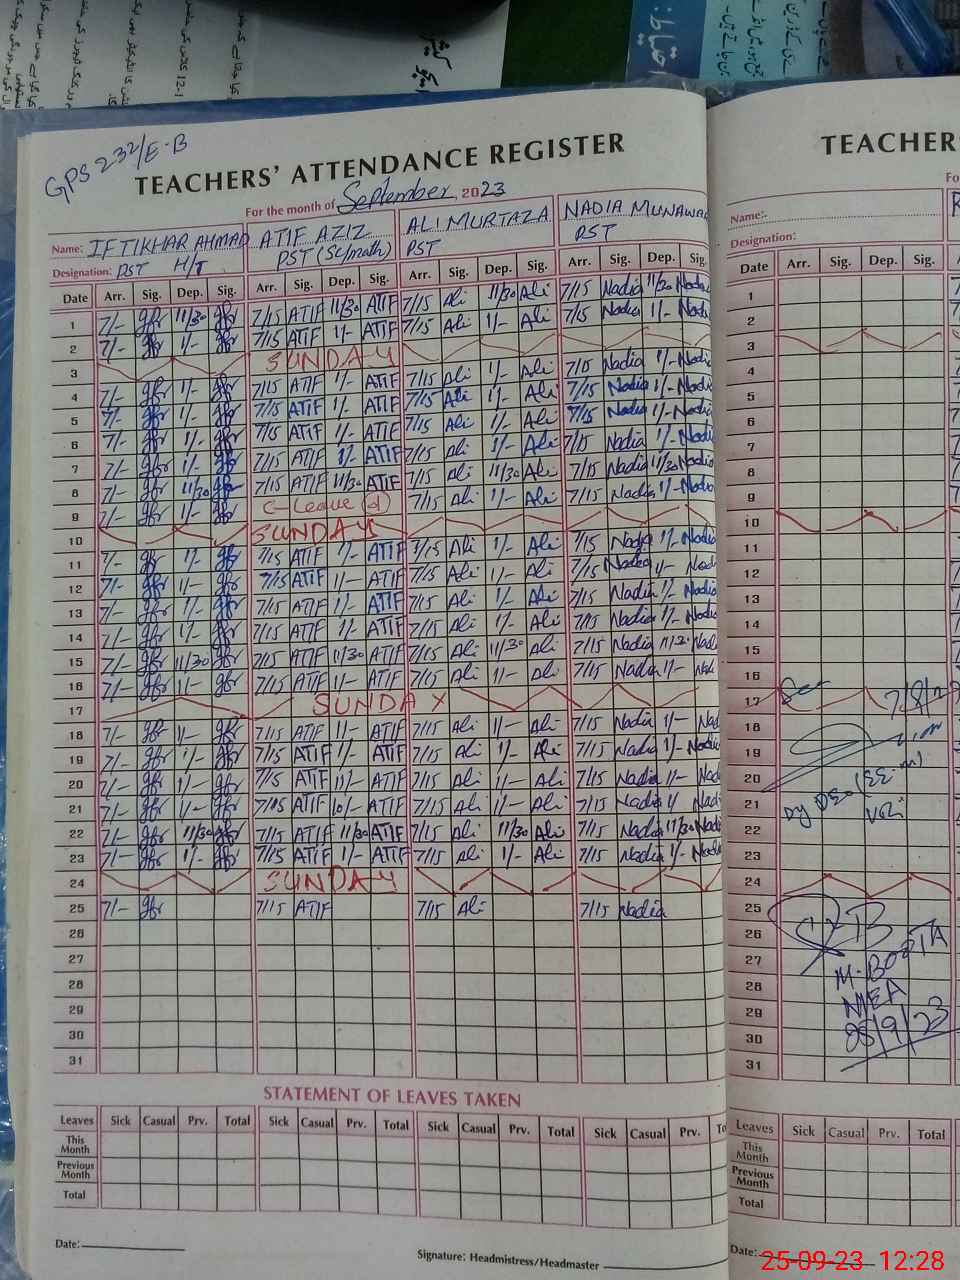 GPS 232/E-B
TEACHERS' ATTENDANCE REGISTER
For the month of September, 2023
Name: IFTIKHAR AHMAD ATIF AZIZ ALI MURTAZA NADIA MUNAWAR
Designation: PST H/T PST (Sc/math) PST PST
Date Arr. Sig. Dep. Sig. Arr. Sig. Dep. Sig. Arr. Sig. Dep. Sig. Arr. Sig. Dep. Sig.
1 7/- 11/30 7/15 ATIF 11/30 ATIF 7/15 Ali 11/30 Ali 7/15 Nadia 11/30 Nadia
2 7/- 1/- 7/15 ATIF 1/- ATIF 7/15 Ali 1/- Ali 7/15 Nadia 1/- Nadia
3 SUNDAY
4 7/- 1/- 7/15 ATIF 1/- ATIF 7/15 Ali 1/- Ali 7/15 Nadia 1/- Nadia
5 7/- 1/- 7/15 ATIF 1/- ATIF 7/15 Ali 1/- Ali 7/15 Nadia 1/- Nadia
6 7/- 1/- 7/15 ATIF 1/- ATIF 7/15 Ali 1/- Ali 7/15 Nadia 1/- Nadia
7 7/- 1/- 7/15 ATIF 1/- ATIF 7/15 Ali 1/- Ali 7/15 Nadia 1/- Nadia
8 7/- 11/30 7/15 ATIF 11/30 ATIF 7/15 Ali 11/30 Ali 7/15 Nadia 11/30 Nadia
9 7/- 1/- C-Leave 7/15 Ali 1/- Ali 7/15 Nadia 1/- Nadia
10 SUNDAY
11 7/- 1/- 7/15 ATIF 1/- ATIF 7/15 Ali 1/- Ali 7/15 Nadia 1/- Nadia
12 7/- 1/- 7/15 ATIF 1/- ATIF 7/15 Ali 1/- Ali 7/15 Nadia 1/- Nadia
13 7/- 1/- 7/15 ATIF 1/- ATIF 7/15 Ali 1/- Ali 7/15 Nadia 1/- Nadia
14 7/- 1/- 7/15 ATIF 1/- ATIF 7/15 Ali 1/- Ali 7/15 Nadia 1/- Nadia
15 7/- 11/30 7/15 ATIF 11/30 ATIF 7/15 Ali 11/30 Ali 7/15 Nadia 11/30 Nadia
16 7/- 1/- 7/15 ATIF 1/- ATIF 7/15 Ali 1/- Ali 7/15 Nadia 1/- Nadia
17 SUNDAY
18 7/- 1/- 7/15 ATIF 1/- ATIF 7/15 Ali 1/- Ali 7/15 Nadia 1/- Nadia
19 7/- 1/- 7/15 ATIF 1/- ATIF 7/15 Ali 1/- Ali 7/15 Nadia 1/- Nadia
20 7/- 1/- 7/15 ATIF 1/- ATIF 7/15 Ali 1/- Ali 7/15 Nadia 1/- Nadia
21 7/- 1/- 7/15 ATIF ATIF 7/15 Ali 1/- Ali 7/15 Nadia Nadia
22 7/- 11/30 7/15 ATIF 11/30 ATIF 7/15 Ali 11/30 Ali 7/15 Nadia 11/30 Nadia
23 7/- 1/- 7/15 ATIF 1/- ATIF 7/15 Ali 1/- Ali 7/15 Nadia 1/- Nadia
24 SUNDAY
25 7/- 7/15 ATIF 7/15 Ali 7/15 Nadia
26
27
28
29
30
31
STATEMENT OF LEAVES TAKEN
Leaves Sick Casual Prv. Total Sick Casual Prv. Total Sick Casual Prv. Total Sick Casual Prv. To
This Month
Previous Month
Total
Date:
Signature: Headmistress/Headmaster
TEACHER
Fo
Name:-
Designation:
Date Arr. Sig. Dep. Sig.
1
2
3
4
5
6
7
8
9
10
11
12
13
14
15
16
17
18
19
20
21 Dy DEO (EE-M)
22
23
24
25
26
27 M. BOOTA
28 MEA
29 25/9/23
30
31
Leaves Sick Casual Prv. Total
This Month
Previous Month
Total
Date:
25-09-23 12:28